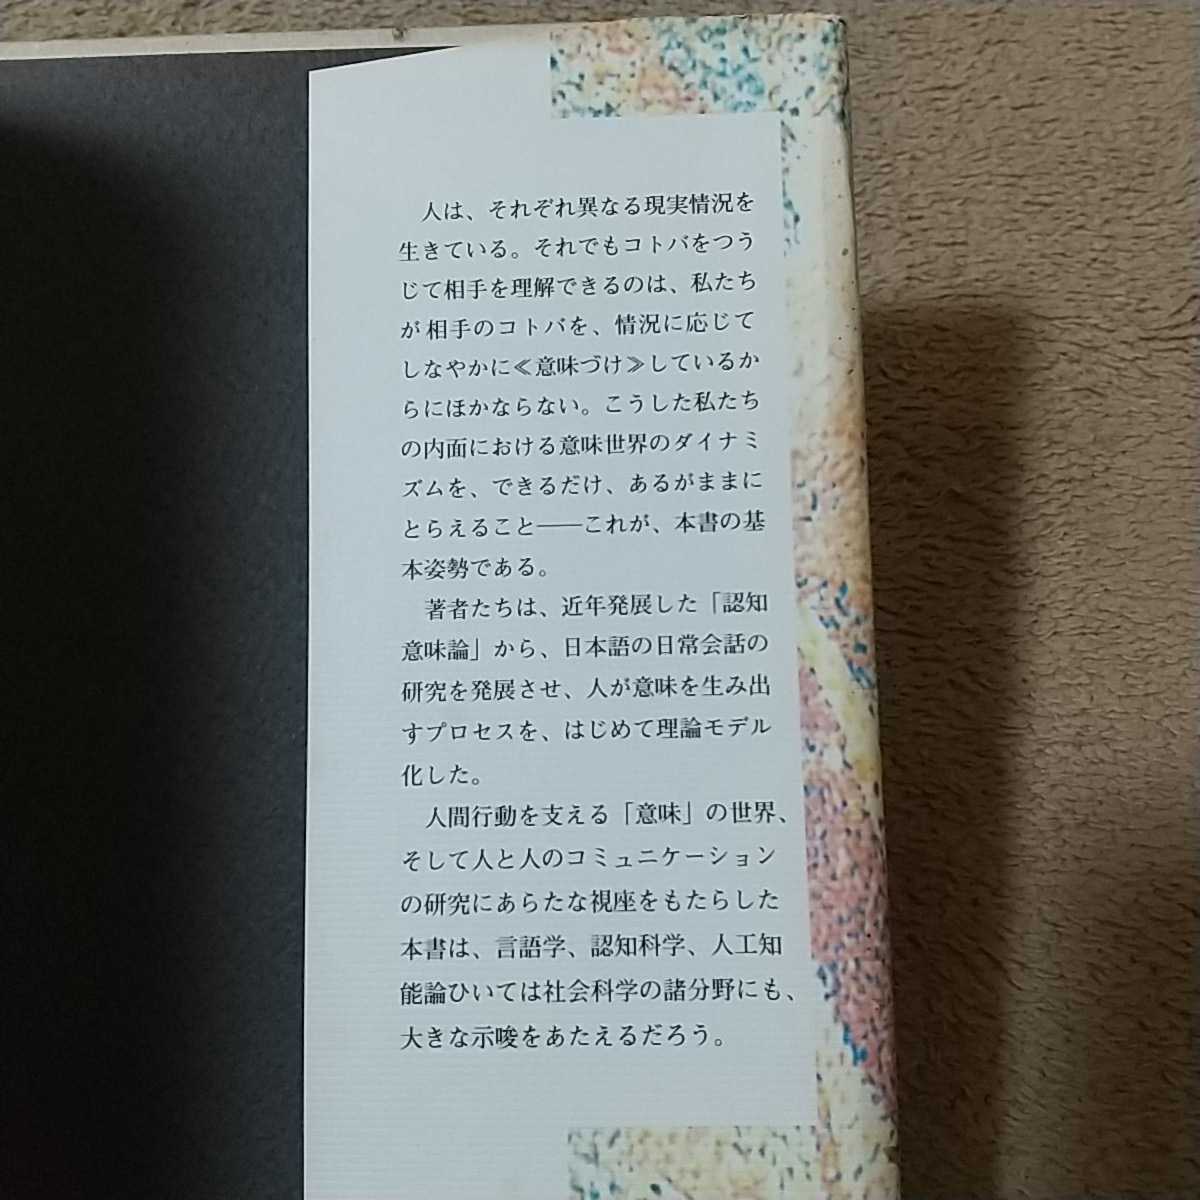 人は、それぞれ異なる現実情況を
生きている。それでもコトバをつう
じて相手を理解できるのは、私たち
が相手のコトバを、情況に応じて
しなやかに≪意味づけ≫しているか
らにほかならない。こうした私たち
の内面における意味世界のダイナミ
ズムを、できるだけ、あるがままに
とらえること――これが、本書の基
本姿勢である。
著者たちは、近年発展した「認知
意味論」から、日本語の日常会話の
研究を発展させ、人が意味を生み出
すプロセスを、はじめて理論モデル
化した。
人間行動を支える「意味」の世界、
そして人と人のコミュニケーション
の研究にあらたな視座をもたらした
本書は、言語学、認知科学、人工知
能論ひいては社会科学の諸分野にも、
大きな示唆をあたえるだろう。